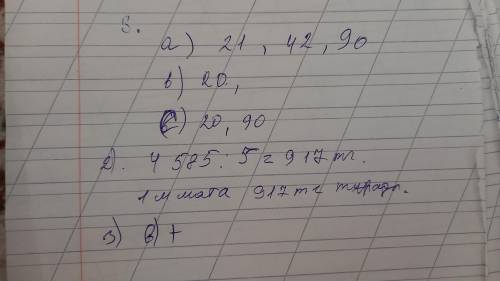 s.
a) 21, 42, 90
b) 20,
c) 20, 90
2). 4 585 : 5 = 917 тг.
1 м мата 917 тг тұрады.
3) в) +